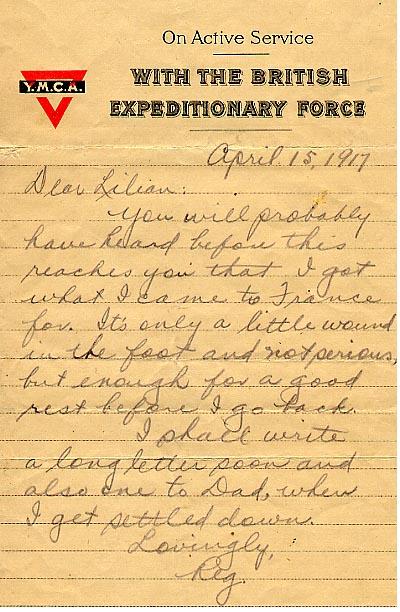 On Active Service
WITH THE BRITISH
EXPEDITIONARY FORCE
Y.M.C.A.
April 15, 1917
Dear Lilian:
You will probably
have heard before this
reaches you that I got
what I came to France
for. It's only a little wound
in the foot and not serious,
but enough for a good
rest before I go back.
I shall write
a long letter soon and
also one to Dad, when
I get settled down.
Lovingly,
Reg.